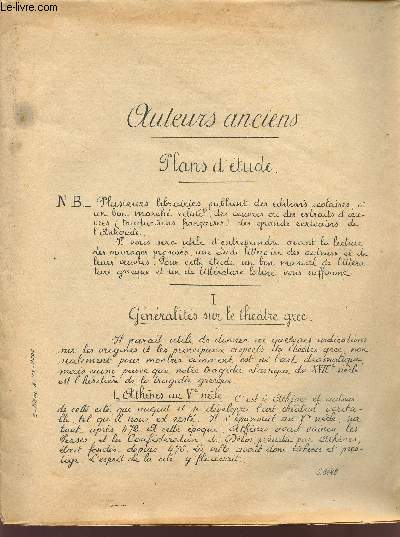 Le-livre.com
Auteurs anciens
Plans d'étude.
N.B_ Plusieurs librairies publient des éditions scolaires, à
un bon marché relatif, des œuvres ou des extraits d'œu-
vres (traductions françaises) des grands écrivains de
l'Antiquité.
Il vous sera utile d'entreprendre avant la lecture
des ouvrages proposés, une étude littéraire des auteurs et de
leurs œuvres. Pour cette étude un bon manuel de littéra-
ture grecque et un de littérature latine vous suffiront.
I
Généralités sur le théâtre grec.
Il paraît utile de donner ici quelques indications
sur les origines et les principaux aspects du théâtre grec, non
seulement pour montrer comment est né l'art dramatique
mais comme preuve que notre tragédie classique du XVIIe siècle
est l'héritière de la tragédie grecque.
1. Athènes au Ve siècle. C'est à Athènes et autour
de cette cité que naquit et se développa l'art théâtral
tel qu'il nous est resté. Il s'épanouit au Ve siècle, sur-
tout après 472. A cette époque, Athènes avait vaincu les
Perses et la Confédération de Délos présidée par Athènes,
était fondée depuis 476. La ville avait donc et pres-
tige. L'esprit de la cité y florissait.